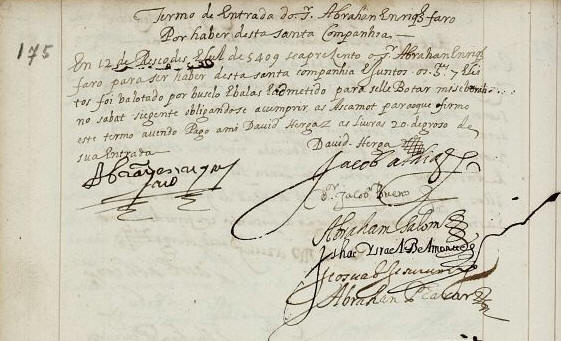 Termo de Entrada do Sr. Abrahan Enriqz faro
Por haber desta Santa Companhia
175
En 12 de de 5409 se aprezento o Sr. Abrahan Enriqz
faro para ser haber desta santa companhia E juntos os Sres. 7
tos foi balotado por buselo Ebalas Eadmetido para selle Botar misseberah
no sabat sigente obligandose acumprir as Ascamot paraoque firmo
este termo avendo Pago ami David Hergaz as livras 20 de groso de
sua Entrada
David Hergaz
Abraham enriques
faro
Jacob athias
Dr. Jacob Bueno
Abraham Salom
Ishac Israel De
Josua Jesurun
Abrahan